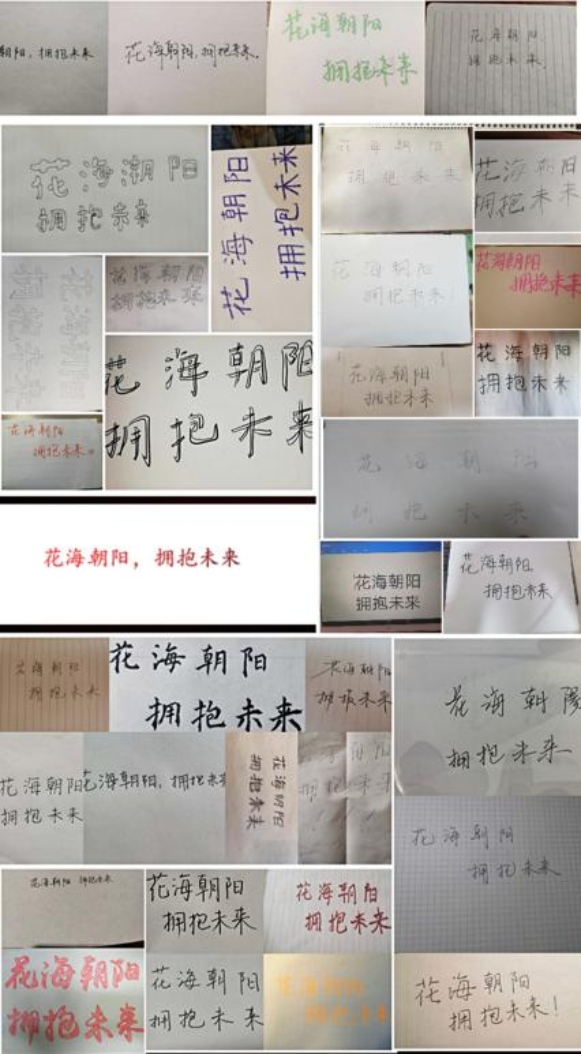 朝阳，拥抱未来
花海朝阳,拥抱未来.
花海朝阳
拥抱未来
花海朝阳
拥抱未来.
花海潮阳
拥抱未来
花海朝阳
拥抱未来
花海朝阳
拥抱未来
花海朝阳
拥抱未来
花海朝阳
拥抱未来
花海朝阳
拥抱未来
花海朝阳
拥抱未来。
花海朝阳
拥抱未来
花海朝阳
拥抱未来!
花海朝阳
拥抱未来
花海朝阳
拥抱未来
花海朝阳
拥抱未来
花海朝阳
拥抱未来
花海朝阳，拥抱未来
花海朝阳
拥抱未来
花海朝阳
拥抱未来
花海朝阳
拥抱未来
花海朝阳
拥抱未来
花海朝阳
拥抱未来
花海朝阳
拥抱未来
花海朝阳
拥抱未来
花海朝阳，拥抱未来
花海朝阳
拥抱未来
花海朝阳
拥抱未来
花海朝阳 拥抱未来
花海朝阳
拥抱未来
花海朝阳
拥抱未来
花海朝阳
拥抱未来
花海朝阳
拥抱未来
花海朝阳
拥抱未来!